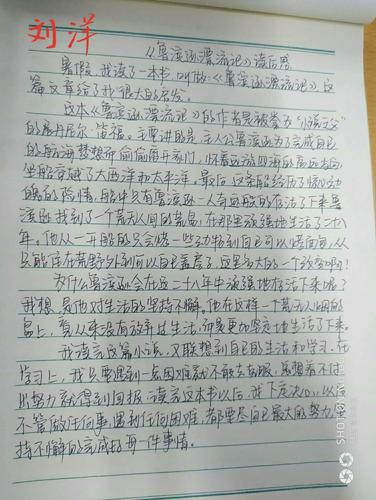 刘洋
《鲁滨逊漂流记》读后感
暑假,我读了一本书,叫做《鲁滨逊漂流记》这
篇文章给了我很大的启发。
这本《鲁滨逊漂流记》的作者是被誉为"小说之父"
的丹尼尔·笛福。主要讲的是主人公鲁滨逊为了完成自己
的航海梦想而偷偷离开家门,怀着远游四海的高远志向
坐船穿越了大西洋和太平洋。最后,这条船经历了惊心动
魄的险情,船中只有鲁滨逊一人奇迹般的存活了下来鲁
滨逊找到了一个荒无人间的荒岛,在那里顽强地生活了二十八
年。他从一开始的只会烤一些动物到自己可以烤面包,从
只能住在荒野外到可以自己盖房子,这是多大的一个改变啊!
为什么鲁滨逊会在这二十八年中顽强地存活下来呢?
我想,是他对生活的坚持不懈。他在这样一个荒无人烟的
岛上,竟从来没有放弃过生活,而是更加坚定地生活了下来。
我读完这篇小说,又联想到自己的生活和学习。在
学习上,我只要遇到一点困难就不敢去克服,总想着不付
出努力就得到回报。读完这本书以后,我下定决心,以后
不管做任何事,遇到任何困难,都要尽自己最大的努力坚
持不懈的完成好每一件事情。
SHOT ON